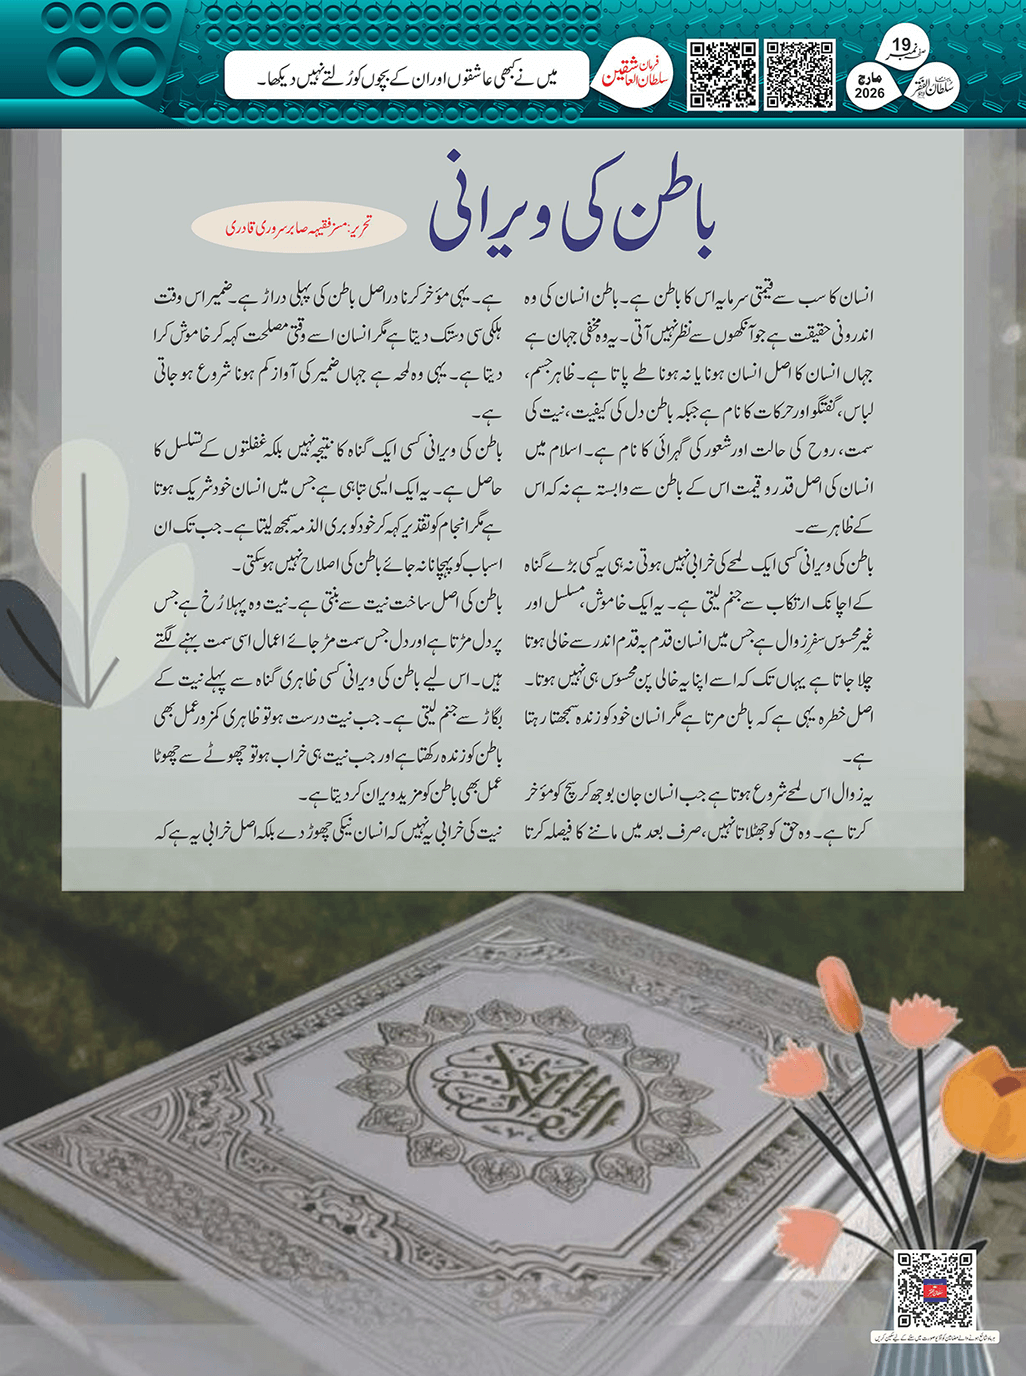 میں نے کبھی عاشقوں اور ان کے بچوں کو رُلتے نہیں دیکھا۔
فرمان
سلطان العاشقین
مارچ
2026
صفحہ نمبر
19
سلطان الفقر
باطن کی ویرانی
تحریر: مسز فقیہہ صابر سروری قادری
انسان کا سب سے قیمتی سرمایہ اس کا باطن ہے۔ باطن انسان کی وہ
اندرونی حقیقت ہے جو آنکھوں سے نظر نہیں آتی۔ یہ وہ مخفی جہان ہے
جہاں انسان کا اصل انسان ہونا یا نہ ہونا طے پاتا ہے۔ ظاہر جسم،
لباس، گفتگو اور حرکات کا نام ہے جبکہ باطن دل کی کیفیت، نیت کی
سمت، روح کی حالت اور شعور کی گہرائی کا نام ہے۔ اسلام میں
انسان کی اصل قدر و قیمت اس کے باطن سے وابستہ ہے نہ کہ اس
کے ظاہر سے۔
باطن کی ویرانی کسی ایک لمحے کی خرابی نہیں ہوتی نہ ہی یہ کسی بڑے گناہ
کے اچانک ارتکاب سے جنم لیتی ہے۔ یہ ایک خاموش، مسلسل اور
غیر محسوس سفرِ زوال ہے جس میں انسان قدم بہ قدم اندر سے خالی ہوتا
چلا جاتا ہے یہاں تک کہ اسے اپنا یہ خالی پن محسوس ہی نہیں ہوتا۔
اصل خطرہ یہی ہے کہ باطن مرتا ہے مگر انسان خود کو زندہ سمجھتا رہتا
ہے۔
یہ زوال اس لمحے شروع ہوتا ہے جب انسان جان بوجھ کر سچ کو مؤخر
کرتا ہے۔ وہ حق کو جھٹلاتا نہیں، صرف بعد میں ماننے کا فیصلہ کرتا
ہے۔ یہی مؤخر کرنا دراصل باطن کی پہلی دراڑ ہے۔ ضمیر اس وقت
ہلکی سی دستک دیتا ہے مگر انسان اسے وقتی مصلحت کہہ کر خاموش کرا
دیتا ہے۔ یہی وہ لمحہ ہے جہاں ضمیر کی آواز کم ہونا شروع ہو جاتی
ہے۔
باطن کی ویرانی کسی ایک گناہ کا نتیجہ نہیں بلکہ غفلتوں کے تسلسل کا
حاصل ہے۔ یہ ایک ایسی تباہی ہے جس میں انسان خود شریک ہوتا
ہے مگر انجام کو تقدیر کہہ کر خود کو بری الذمہ سمجھ لیتا ہے۔ جب تک ان
اسباب کو پہچانا نہ جائے باطن کی اصلاح نہیں ہو سکتی۔
باطن کی اصل ساخت نیت سے بنتی ہے۔ نیت وہ پہلا رُخ ہے جس
پر دل مڑتا ہے اور دل جس سمت مڑ جائے اعمال اسی سمت بہنے لگتے
ہیں۔ اس لیے باطن کی ویرانی کسی ظاہری گناہ سے پہلے نیت کے
بگاڑ سے جنم لیتی ہے۔ جب نیت درست ہو تو ظاہری کمزور عمل بھی
باطن کو زندہ رکھتا ہے اور جب نیت ہی خراب ہو تو چھوٹے سے چھوٹا
عمل بھی باطن کو مزید ویران کر دیتا ہے۔
نیت کی خرابی یہ نہیں کہ انسان نیکی چھوڑ دے بلکہ اصل خرابی یہ ہے کہ
القرآن الكريم